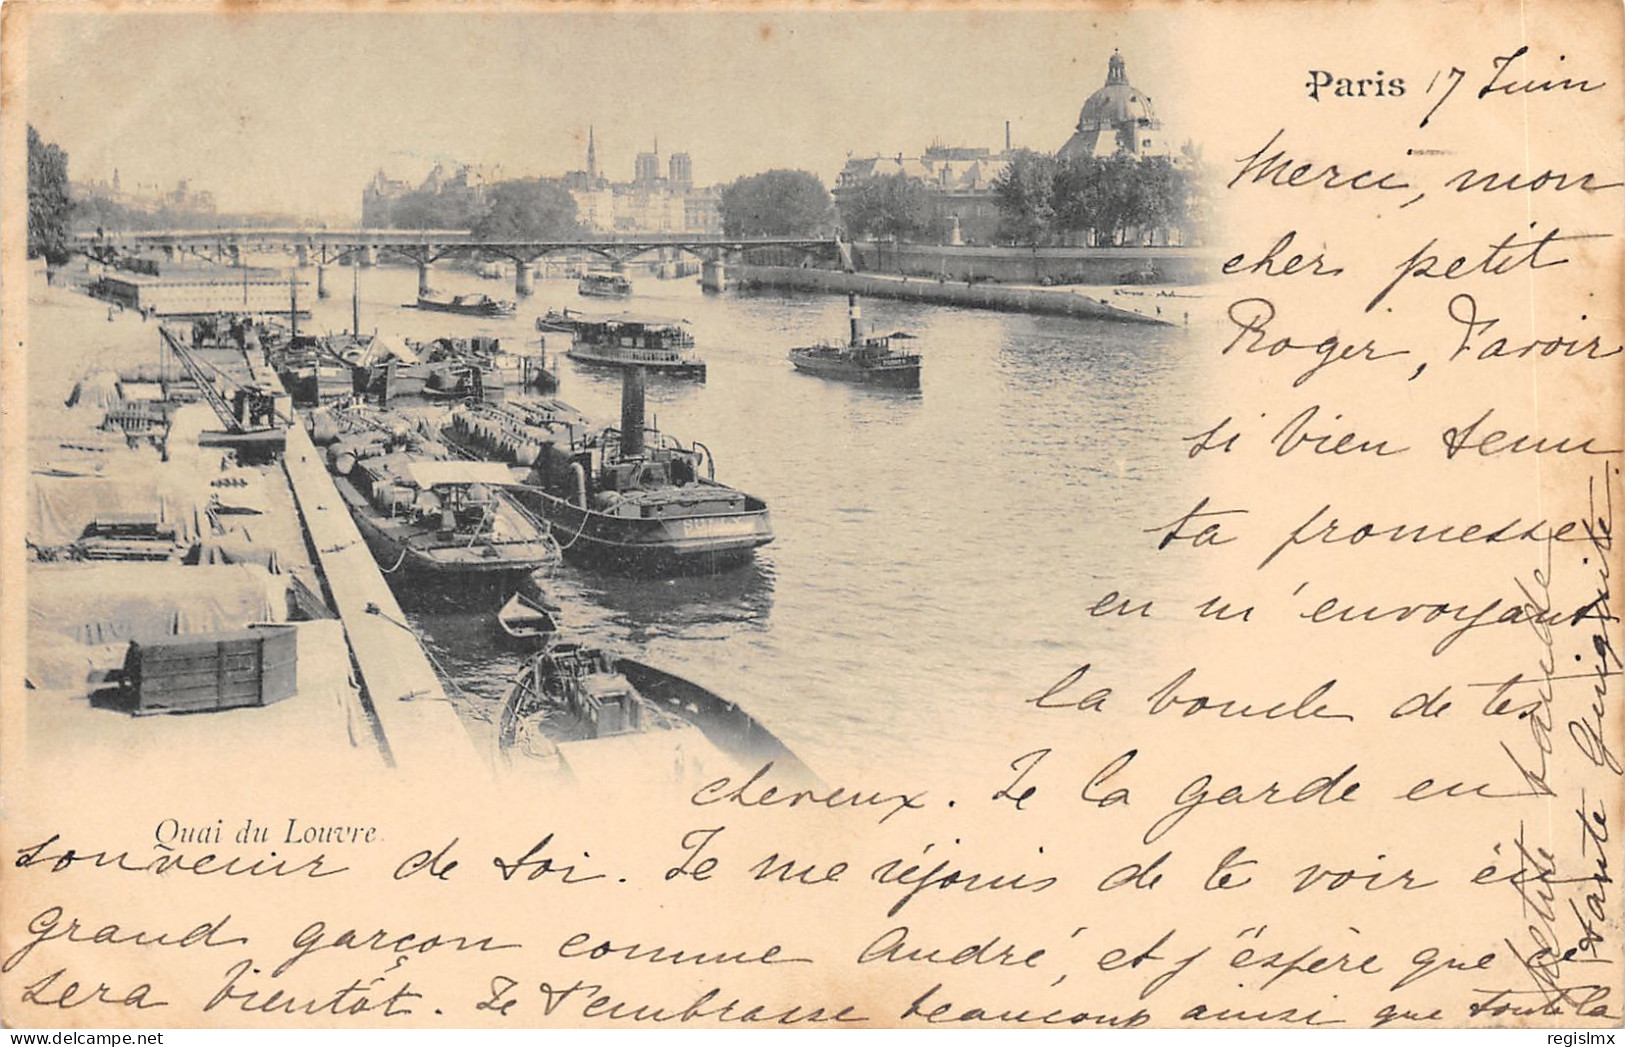 Paris 17 Juin
Merci, mon
cher petit
Roger, d'avoir
si bien tenu
ta promesse
en m'envoyant
la boucle de tes
cheveux. Je la garde en
Quai du Louvre.
souvenir de toi. Je me réjouis de te voir un
grand garçon comme André, et j'éspère que ce
sera bientôt. Je t'embrasse beaucoup ainsi que toute la
petite bande
tante
regislmx